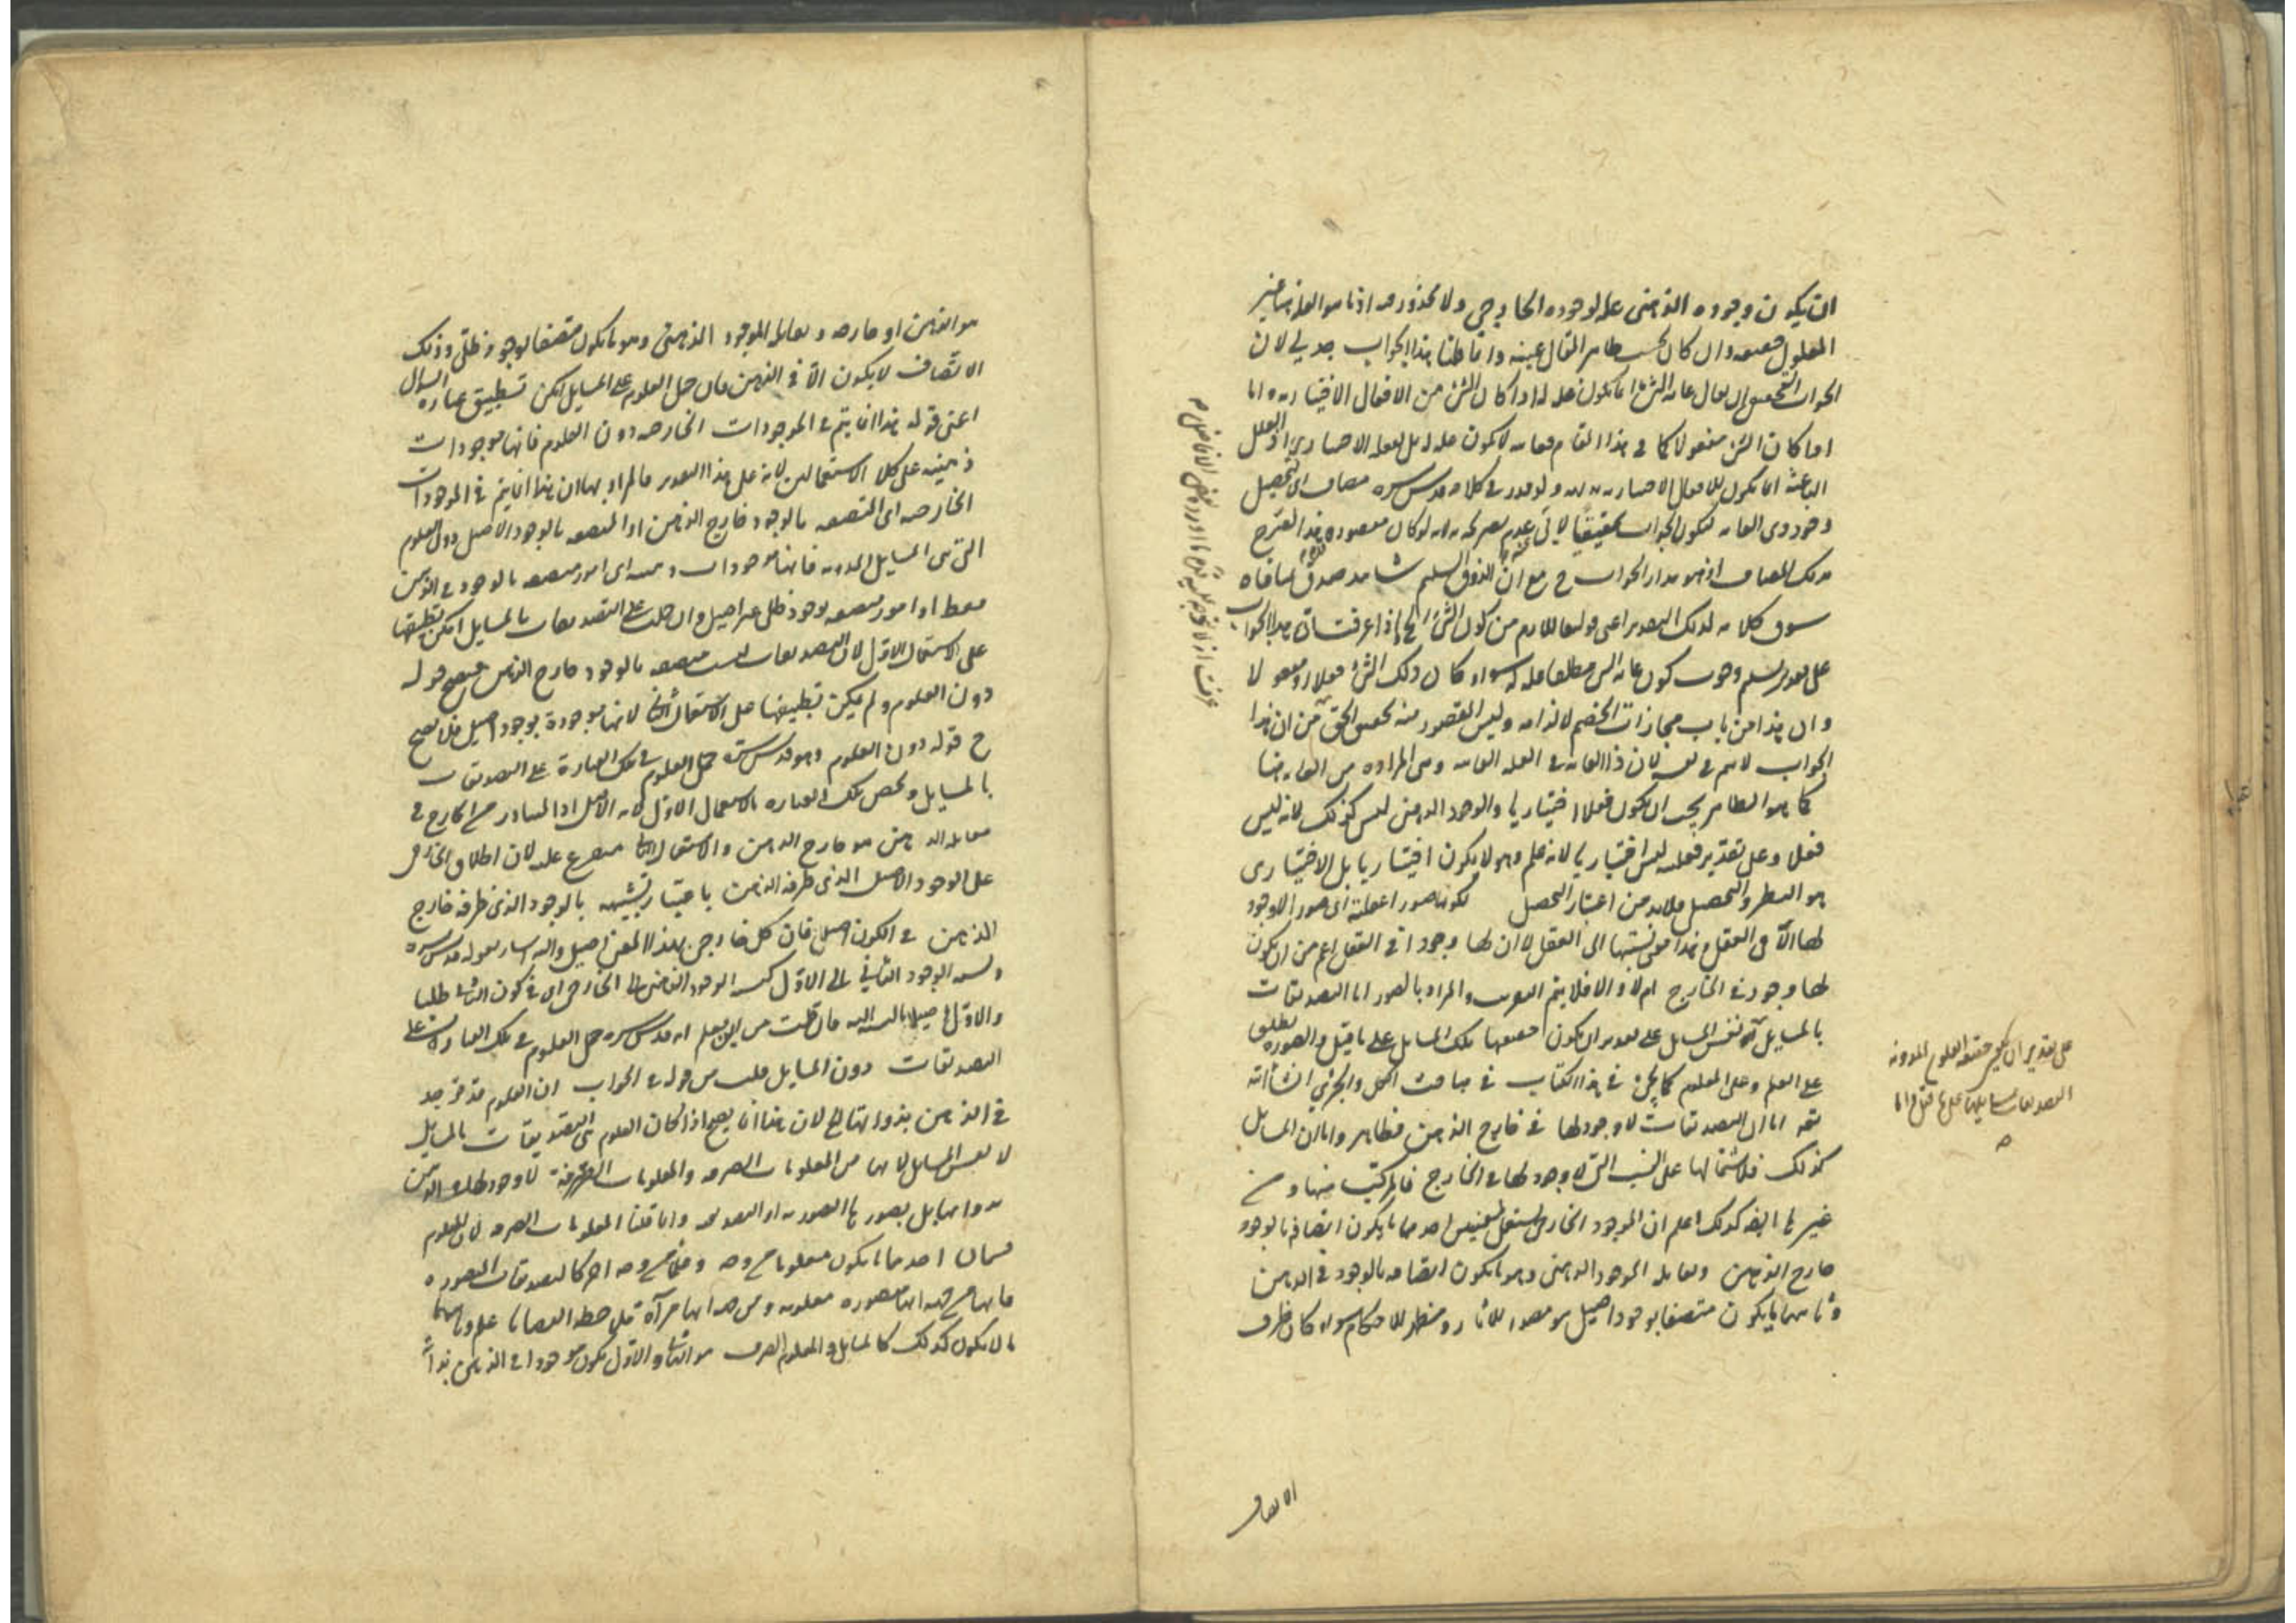 ان يكون وجوده الذهنى علة لوجوده الخارجى ولا محذور فيه اذ ما هو العلة ههنا غير
المعلول حقيقة وان كان بحسب ظاهر المقال عينه وانما قلنا هذا الجواب جدلى لان
الجواب التحقيقى ان يقال غاية الشئ انما يكون علة له اذا كان الشئ من الافعال الاختيارية اما
اذا كان الشئ مفعولا كما فى هذا المقام فغايته لا يكون علة له بل لفعله الاختيارى اذ العلل
الباعثة انما يكون للافعال الاختيارية ولو قدر فى كلامه قدس سره مضاف اى تحصيل
وجود ذى الغاية ليكون الجواب تحقيقيا
بذلك المضاف اذ هو مدار الجواب ح مع ان الذوق السليم شاهد صدق
سوق كلامه لذلك التقدير اعنى قوله من كون الشئ الخ اذا عرفت ان هذا الجواب
على تقدير تسليم وجوب كون غاية الشئ مطلقا علة له سواء كان ذلك الشئ فعلا او مفعولا
وان هذا من باب مجازات الخصم لالزامه وليس المقصود منه تحقيق الحق من ان هذا
الجواب لا يتم فى نفسه لان ذا الغاية فى العلة الغائية وهى المرادة من الغاية هنا
كما هو الظاهر يجب ان يكون فعلا اختياريا والوجود الذهنى ليس كذلك لانه ليس
فعلا وعلى تقدير فعليته ليس اختياريا لانه علم وهو لا يكون اختياريا بل الاختيارى
هو النظر والتحصيل فلا بد من اعتبار التحصيل لكونها صورا عقلية اى صورا لا وجود
لها الا فى العقل وهذا معنى نسبتها الى العقل لا ان لها وجودا فى العقل اعم من ان يكون
لها وجود فى الخارج ام لا والا فلا يتم التقريب والمراد بالصور اما التصديقات
بالمسايل او نفس المسايل على تقدير ان يكون حقيقتها تلك المسايل على ما قيل والصورة يطلق
على العلم وعلى المعلوم كما يجئ فى هذا الكتاب فى مباحث الكلى والجزئى ان شاء الله
تعه اما ان التصديقات لا وجود لها فى خارج الذهن فظاهر واما ان المسايل
كذلك فلاشتمالها على النسب التى لا وجود لها فى الخارج فالمركب منها ومن
غيرها ايضا كذلك اعلم ان الموجود الخارجى يستعمل لمعنيين احدهما ما يكون اتصافه بالوجود
خارج الذهن ويقابله الموجود الذهنى وهو ما يكون اتصافه بالوجود فى الذهن
وثانيهما ما يكون متصفا بوجود اصيل هو مصدر للاثار ومظهر للاحكام سواء كان ظرفه
الاتصاف
على تقدير ان يكون حقيقة العلوم المدونة
التصديقات بمسايلها على ما قيل واما
هو الذهن او خارجه ويقابله الموجود الذهنى وهو ما يكون متصفا بوجود ظلى وذلك
الاتصاف لا يكون الا فى الذهن فان حمل العلوم على المسايل امكن تطبيق عبارة السوال
اعنى قوله هذا انما يتم فى الموجودات الخارجية دون العلوم فانها موجودات
ذهنية على كلا الاستعمالين لانه على هذا التقدير فالمراد بها ان هذا انما يتم فى الموجودات
الخارجية اى المتصفة بالوجود خارج الذهن او المتصفة بالوجود الاصيل دون العلوم
التى هى المسايل المدونة فانها موجودات ذهنية اى امور متصفة بالوجود فى الذهن
فقط او امور متصفة بوجود ظلى غير اصيل وان حملت على التصديقات بالمسايل امكن تطبيقها
على الاستعمال الاول لان التصديقات ليست متصفة بالوجود خارج الذهن فيصح قوله
دون العلوم ولم يمكن تطبيقها على الاستعمال الثانى لانها موجودة بوجود اصيل فلا يصح
ح قوله دون العلوم وهو قدس سره حمل العلوم فى تلك العبارة على التصديقات
بالمسايل وخص تلك العبارة بالاستعمال الاول لانه الاصل اذ المتبادر من الخارج فى
مقابلة الذهن هو خارج الذهن والاستعمال الثانى متفرع عليه لان اطلاق الخارجى
على الوجود الاصيل الذى ظرفه الذهن باعتبار تشبيهه بالوجود الذى ظرفه خارج
الذهن فى الكون اصيلا فان كل خارجى بهذا المعنى اصيل واليه اشار بقوله قدس سره
ونسبة الوجود الثانى الى الاول كنسبة الوجود الذهنى الى الخارجى اى فى كون الثانى ظليا
والاول اصيلا بالنسبة اليه فان قلت من اين يعلم انه قدس سره حمل العلوم فى تلك العبارة على
التصديقات دون المسايل قلت من قوله فى الجواب ان العلوم قد توجد
فى الذهن بذواتها الخ لان هذا انما يصح اذا كان العلوم هى التصديقات بالمسايل
لا نفس المسايل لانها من المعلومات الصرفة والمعلومات الصرفة لا وجود لها فى الذهن
بذواتها بل بصورها التصورية او التصديقية وانما قلنا المعلومات الصرفة لان المعلوم
قسمان احدهما ما يكون معلوما من وجه وعلما من وجه اخر كالتصديقات المتصورة
فانها من جهة انها متصورة معلومة ومن جهة انها مرآة لملاحظة القضايا علم وثانيهما
ما لا يكون كذلك كالمسايل والمعلوم الصرف هو الثانى والاول يكون موجودا فى الذهن بذاته